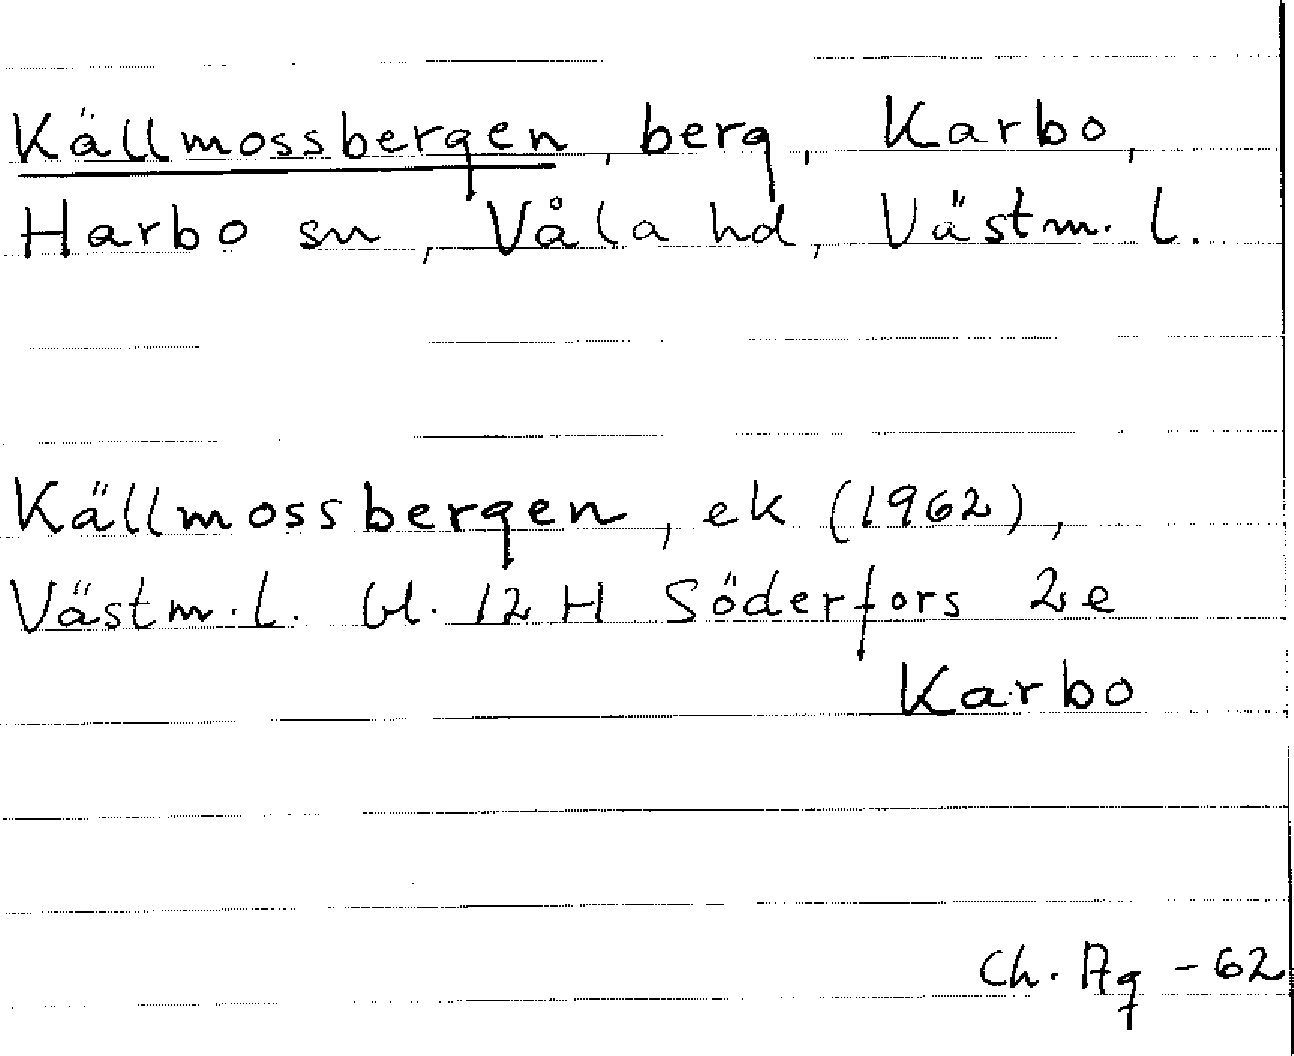 Källmossbergen, berg, Karbo,
Harbo sn, Våla hd, Västm. l.
Källmossbergen, ek (1962),
Västm. l. bl. 12 H Söderfors 2e
Karbo
Ch. Ag -62